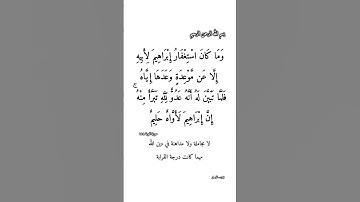 بسم الله الرحمن الرحيم
وَمَا كَانَ اسْتِغْفَارُ إِبْرَاهِيمَ لِأَبِيهِ
إِلَّا عَن مَّوْعِدَةٍ وَعَدَهَا إِيَّاهُ
فَلَمَّا تَبَيَّنَ لَهُ أَنَّهُ عَدُوٌّ لِّلَّهِ تَبَرَّأَ مِنْهُ ۚ
إِنَّ إِبْرَاهِيمَ لَأَوَّاهٌ حَلِيمٌ
لا مجاملة ولا مداهنة في دين الله
مهما كانت درجة القرابة